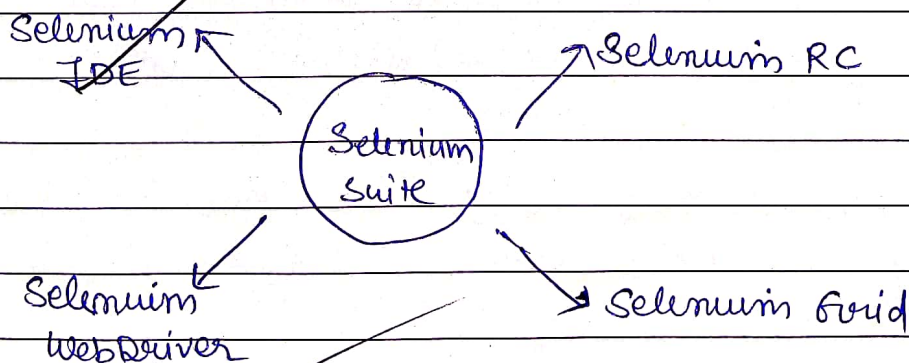 Selenium
IDE
Selenuim RC
Selenium
Suite
Selenuim
WebDriver
Selenuim Grid